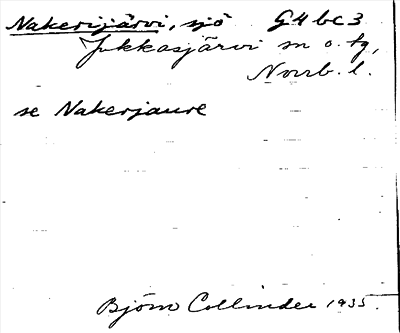 Nakerijärvi, sjö G4 bc3
Jukkasjärvi sn o. tg,
Norrb. l.
se Nakerjaure
Björn Collinder 1935.